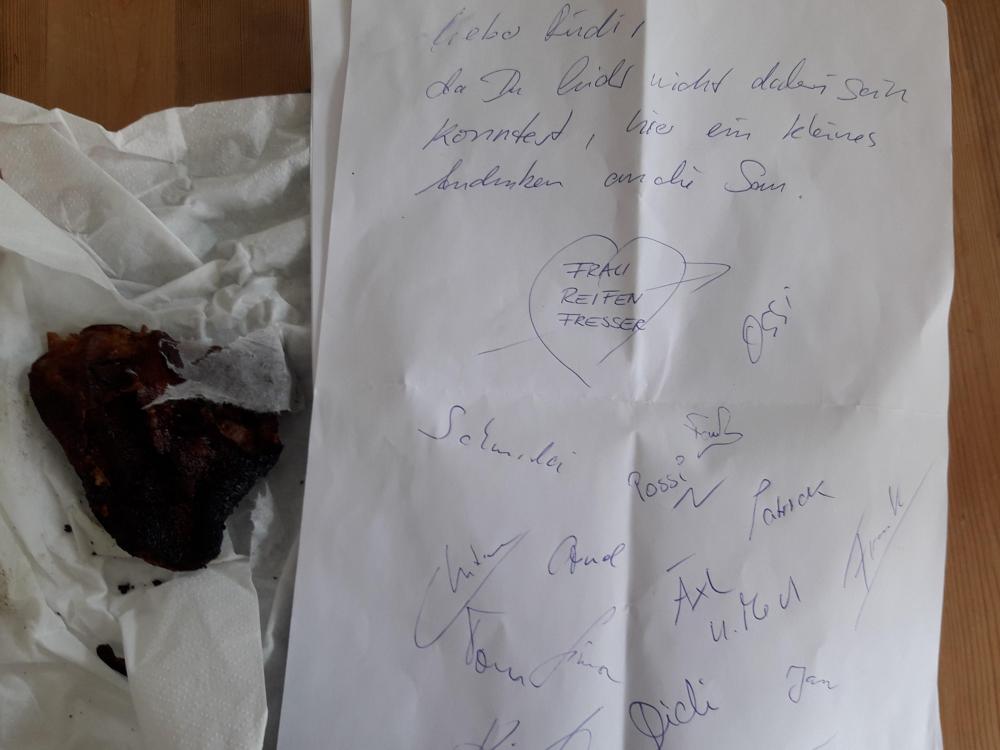 Liebe Rudi,
da Du leider nicht dabei sein
konntest, hier ein kleines
Andenken an die Sau.
FRAU
REIFEN
FRESSER
Ossi
Schmidi
Frank
Possi
Patrick
Arnd
Frank
Axl
Tom
Simon
Didi
Jan